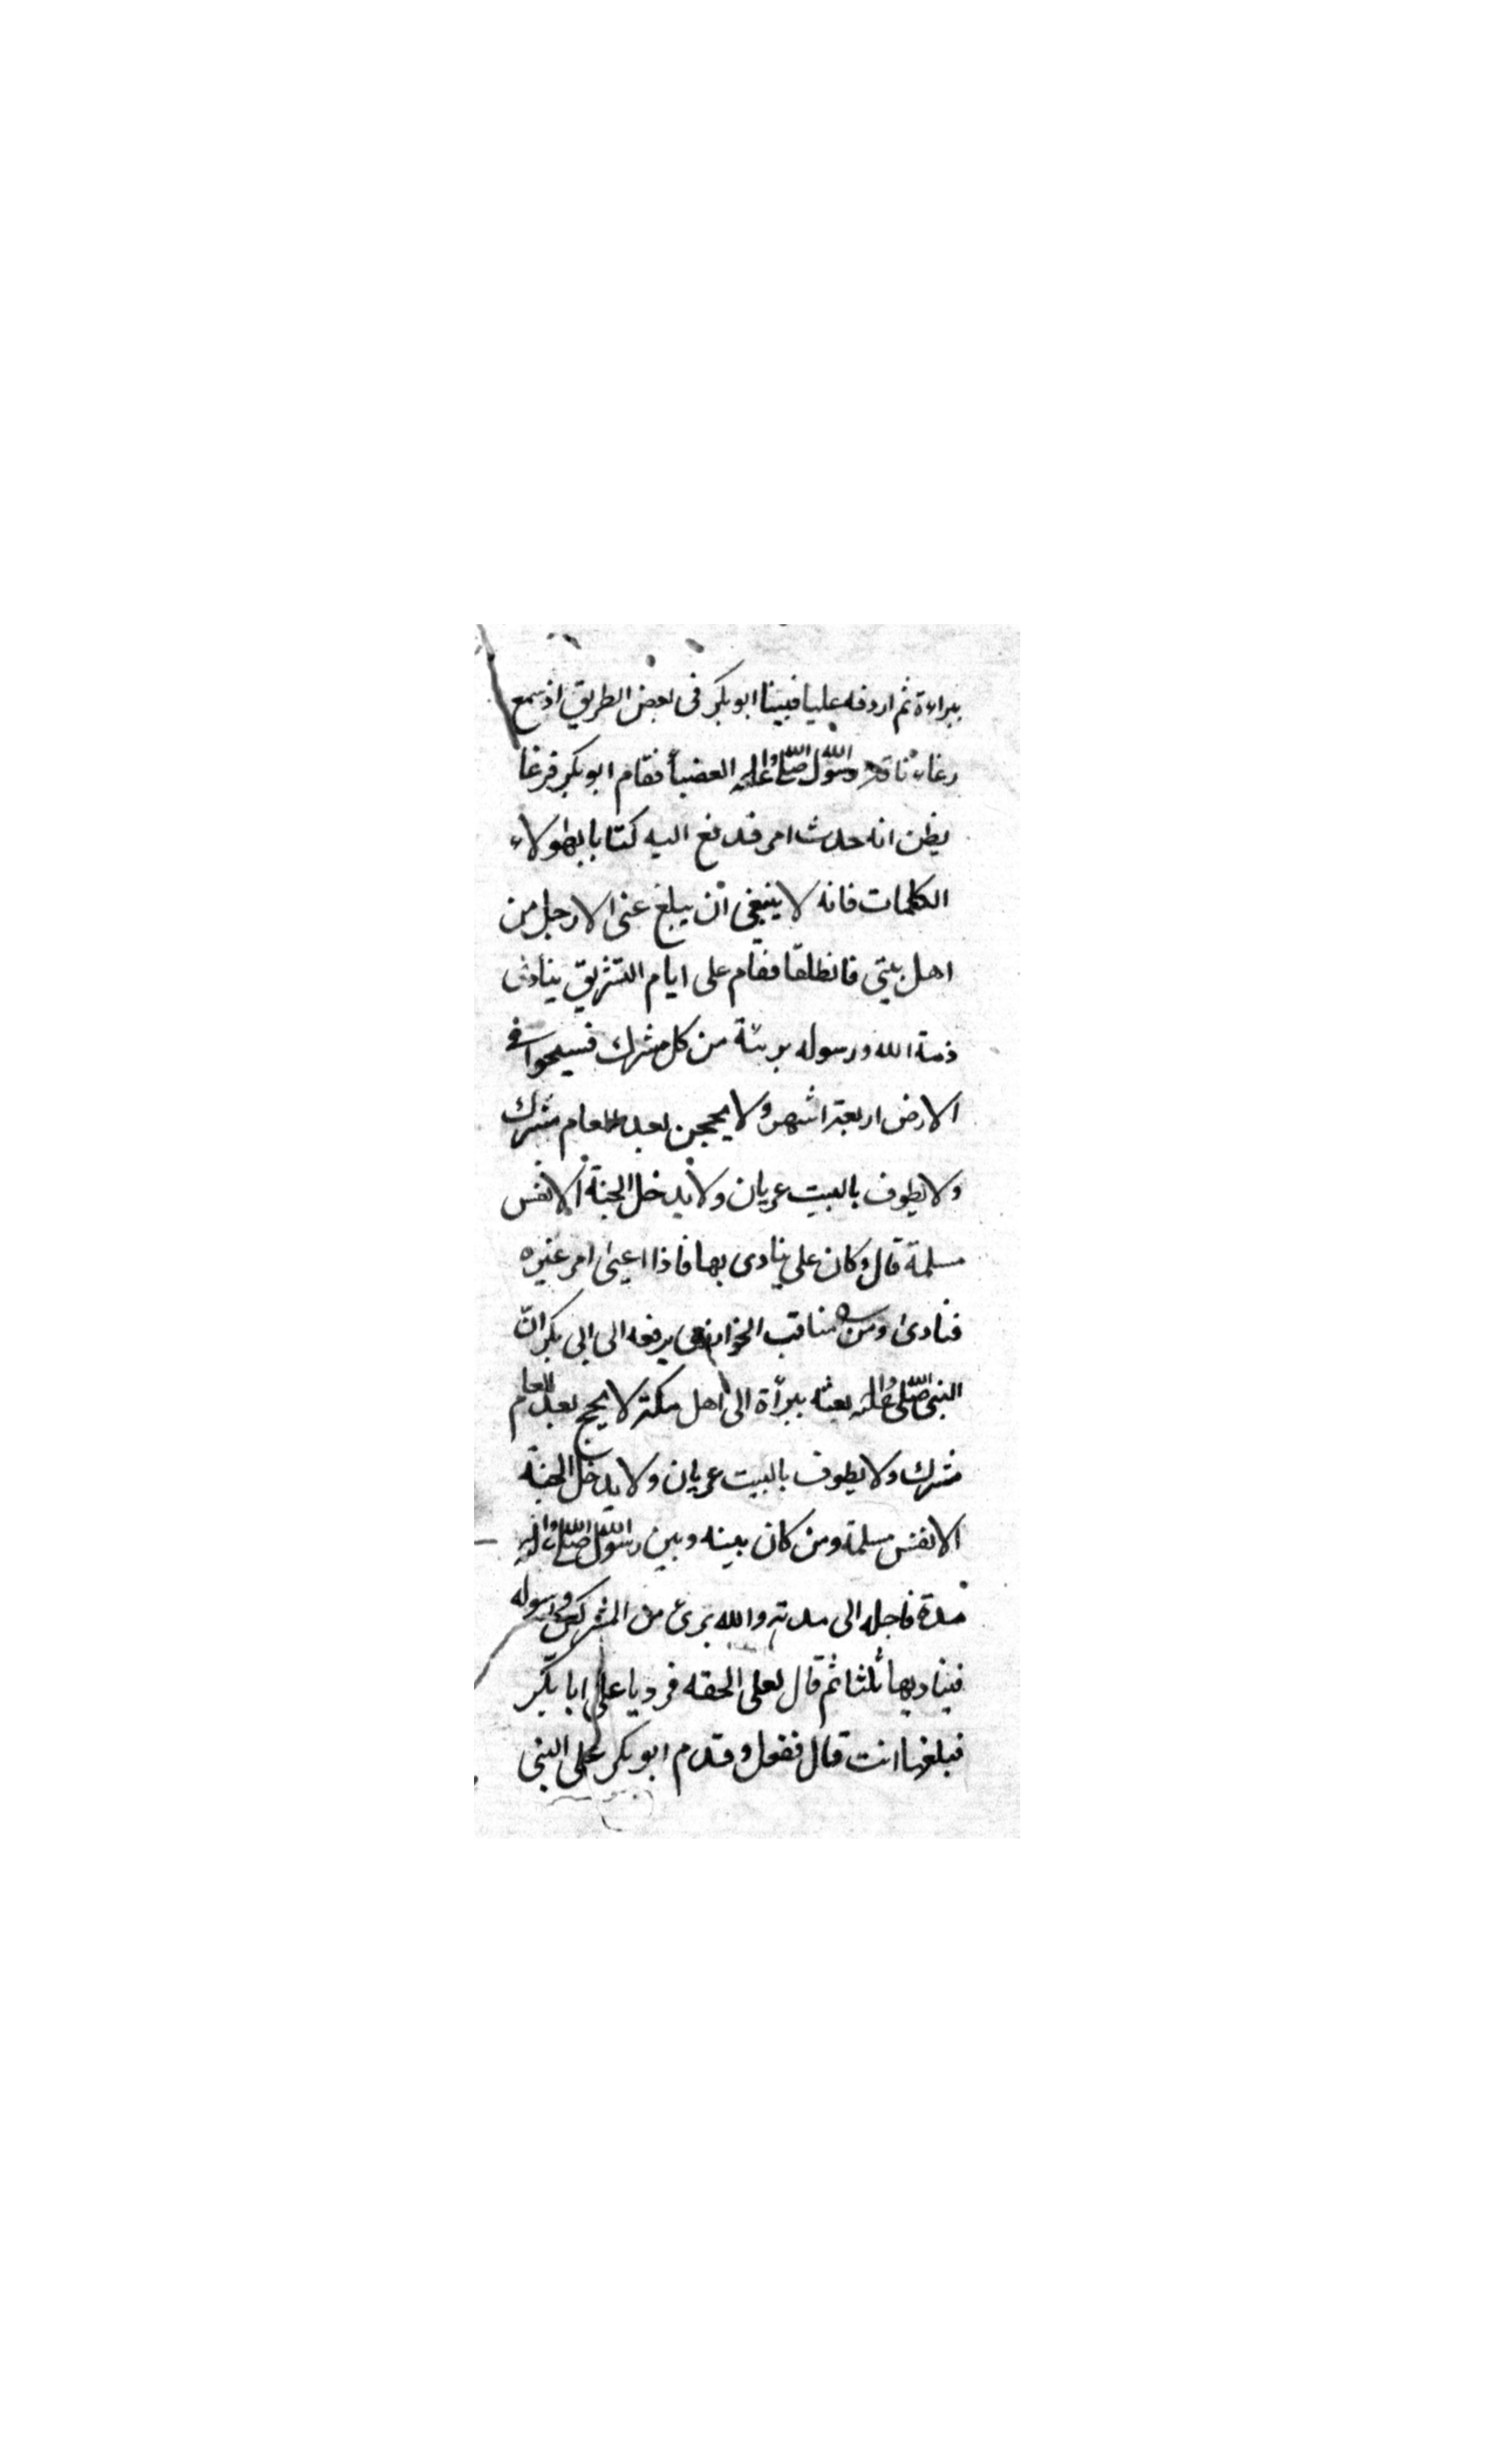 ببراءة ثم اردفه عليا فبينا ابو بكر فى بعض الطريق اذ سمع
رغاء ناقة رسول الله صلى الله عليه العضبأ فقام ابو بكر فزعا
يظن انه حدث امر فدفع اليه كتابا بهٰولاء
الكلمات فانه لا ينبغى ان يبلغ عنى الا رجل من
اهل بيتى فانطلقا فقام على ايام التشريق ينادى
ذمة الله ورسوله بريئة من كل مشرك فسيحوا فى
الارض اربعة اشهر ولا يحجن بعد العام مشرك
ولا يطوف بالبيت عريان ولا يدخل الجنة الا نفس
مسلمة قال وكان على ينادى بها فاذا اعيى امر غيره
فنادى ومن مناقب الخوارزمى يرفعه الى ابى بكر انّ
النبى صلى الله عليه بعثه ببرأة الى اهل مكة لا يحج بعد العام
مشرك ولا يطوف بالبيت عريان ولا يدخل الجنة
الا نفس مسلمة ومن كان بينه وبين رسول الله صلى الله
مدة فاجله الى مدته والله برىء من المشركين ورسوله
فينادى بها ثلثا ثم قال لعلى الحقه فرد يا على ابا بكر
فبلغها انت قال ففعل وقدم ابو بكر على النبى